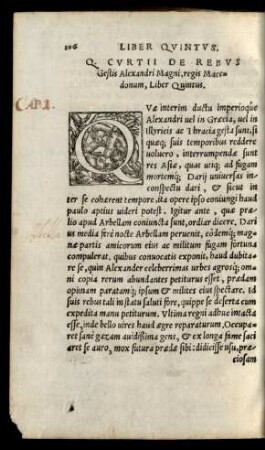 106 LIBER QVINTVS.
Q. CVRTII DE REBVS
Gestis Alexandri Magni, regis Mace-
donum, Liber Quintus.
CAP. 1.
QVæ interim ductu imperioque
Alexandri uel in Græcia, uel in
Illyricis ac Thracia gesta sunt, si
quæq; suis temporibus reddere
uoluero, interrumpendæ sunt
res Asiæ, quas utiq; ad fugam
mortemq; Darij uniuersas in
conspectu dari, & sicut in
ter se cohærent tempore, ita opere ipso coniungi haud
paulo aptius uideri potest. Igitur ante, quæ præ-
lio apud Arbellam coniuncta sunt, ordiar dicere. Dari
us media ferè nocte Arbellam peruenit, eodemq; mag-
næ partis amicorum eius ac militum fugam fortuna
compulerat, quibus conuocatis exponit, haud dubita-
re se, quin Alexander celeberrimas urbes agrosq; om-
ni copia rerum abundantes petiturus esset, prædam
opimam paratamq; ipsum & milites eius spectare. Id
suis rebus tali in statu saluti fore, quippe se deserta cum
expedita manu petiturum. Vltima regni adhuc intacta
esse, inde bello uires haud ægre reparaturum, Occupa-
ret sanè gazam auidissima gens, & ex longa fame saci
aret se auro, mox futura prædæ sibi: didicisse usu, præ-
ciosam